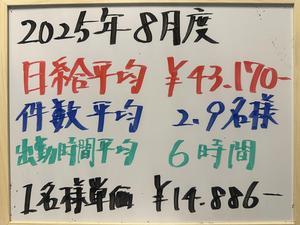 2025年8月度
日給平均 ¥43.170-
件数平均 2.9名様
出勤時間平均 6時間
1名様単価 ¥14.886-